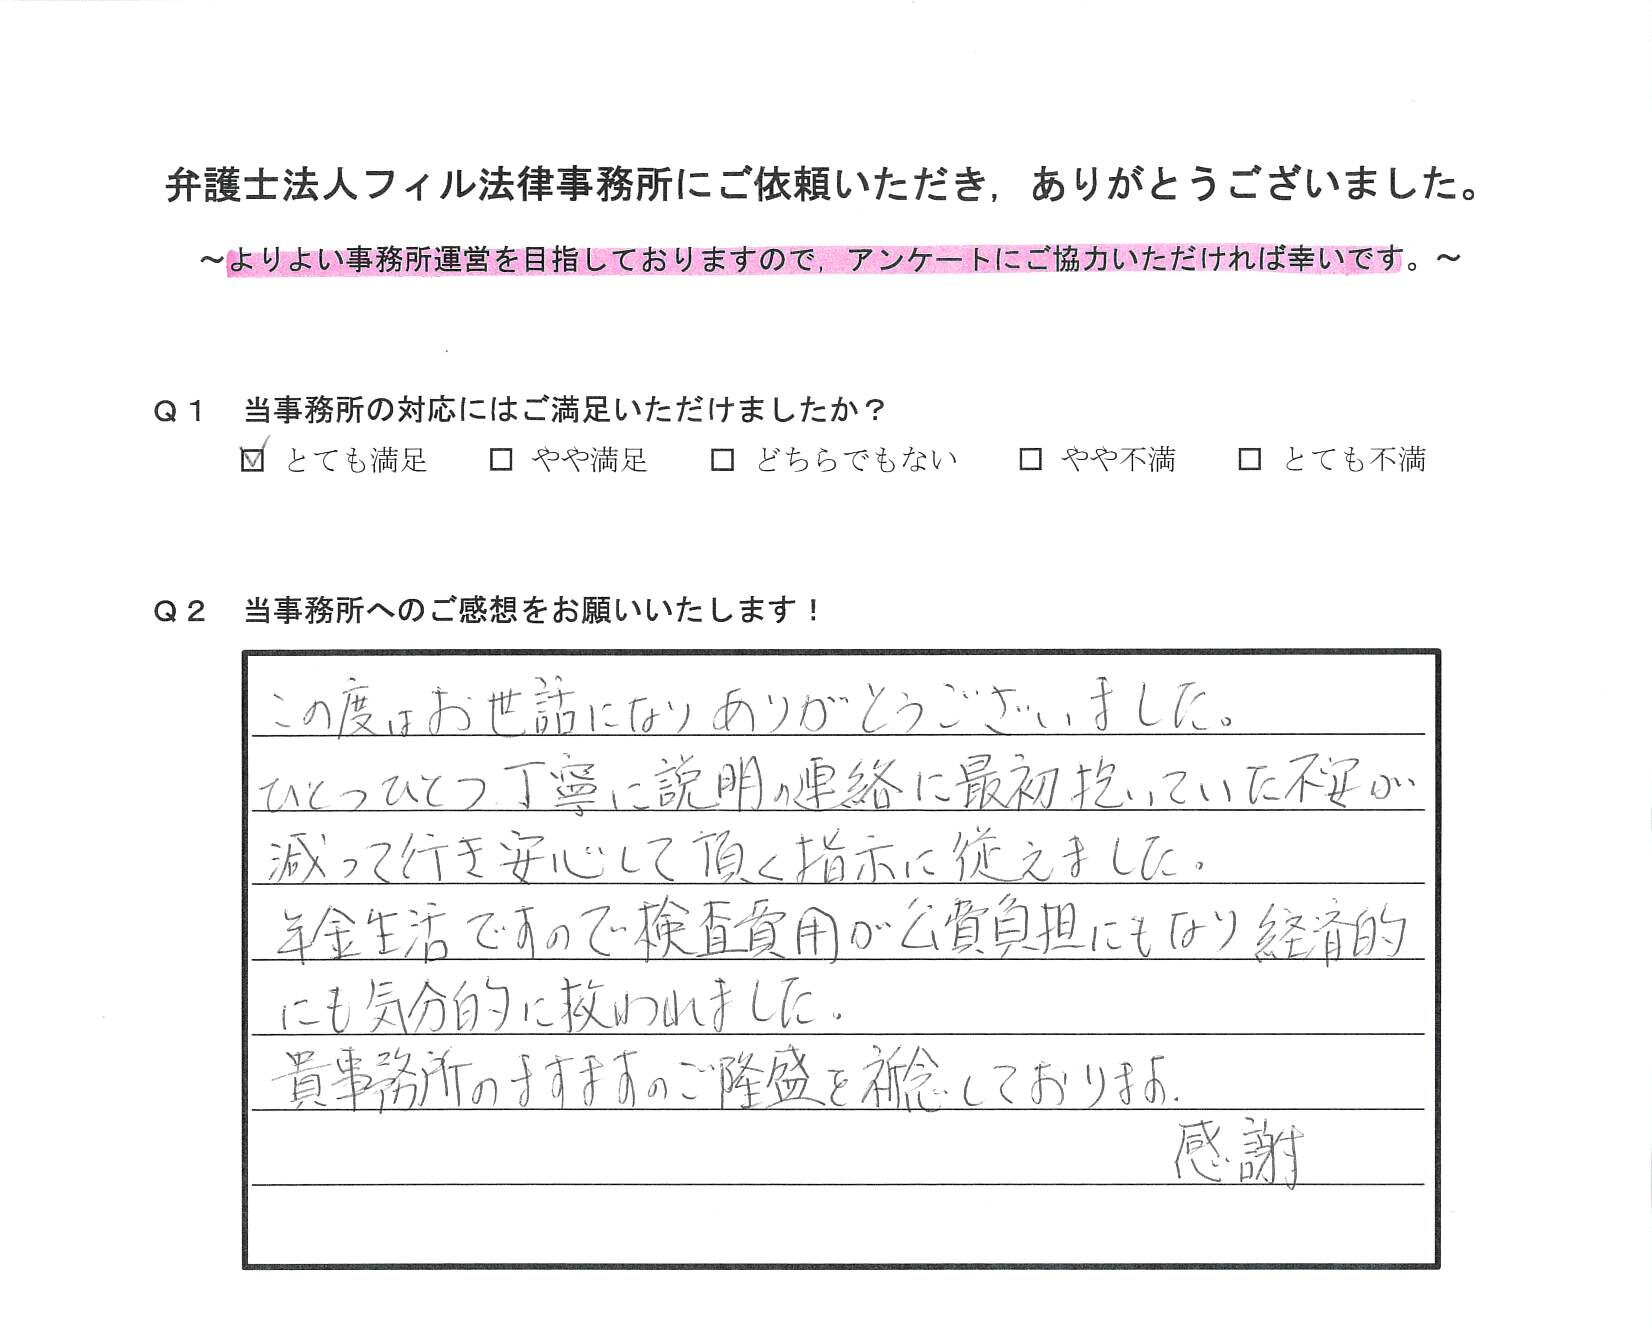 弁護士法人フィル法律事務所にご依頼いただき，ありがとうございました。
～よりよい事務所運営を目指しておりますので，アンケートにご協力いただければ幸いです。～
Ｑ１　当事務所の対応にはご満足いただけましたか？
☑ とても満足　□ やや満足　□ どちらでもない　□ やや不満　□ とても不満
Ｑ２　当事務所へのご感想をお願いいたします！
この度はお世話になりありがとうございました。
ひとつひとつ丁寧に説明の連絡に最初抱いていた不安が
減って行き安心して頂く指示に従えました。
年金生活ですので検査費用が公費負担にもなり経済的
にも気分的に救われました。
貴事務所のますますのご隆盛を祈念しております.
感謝